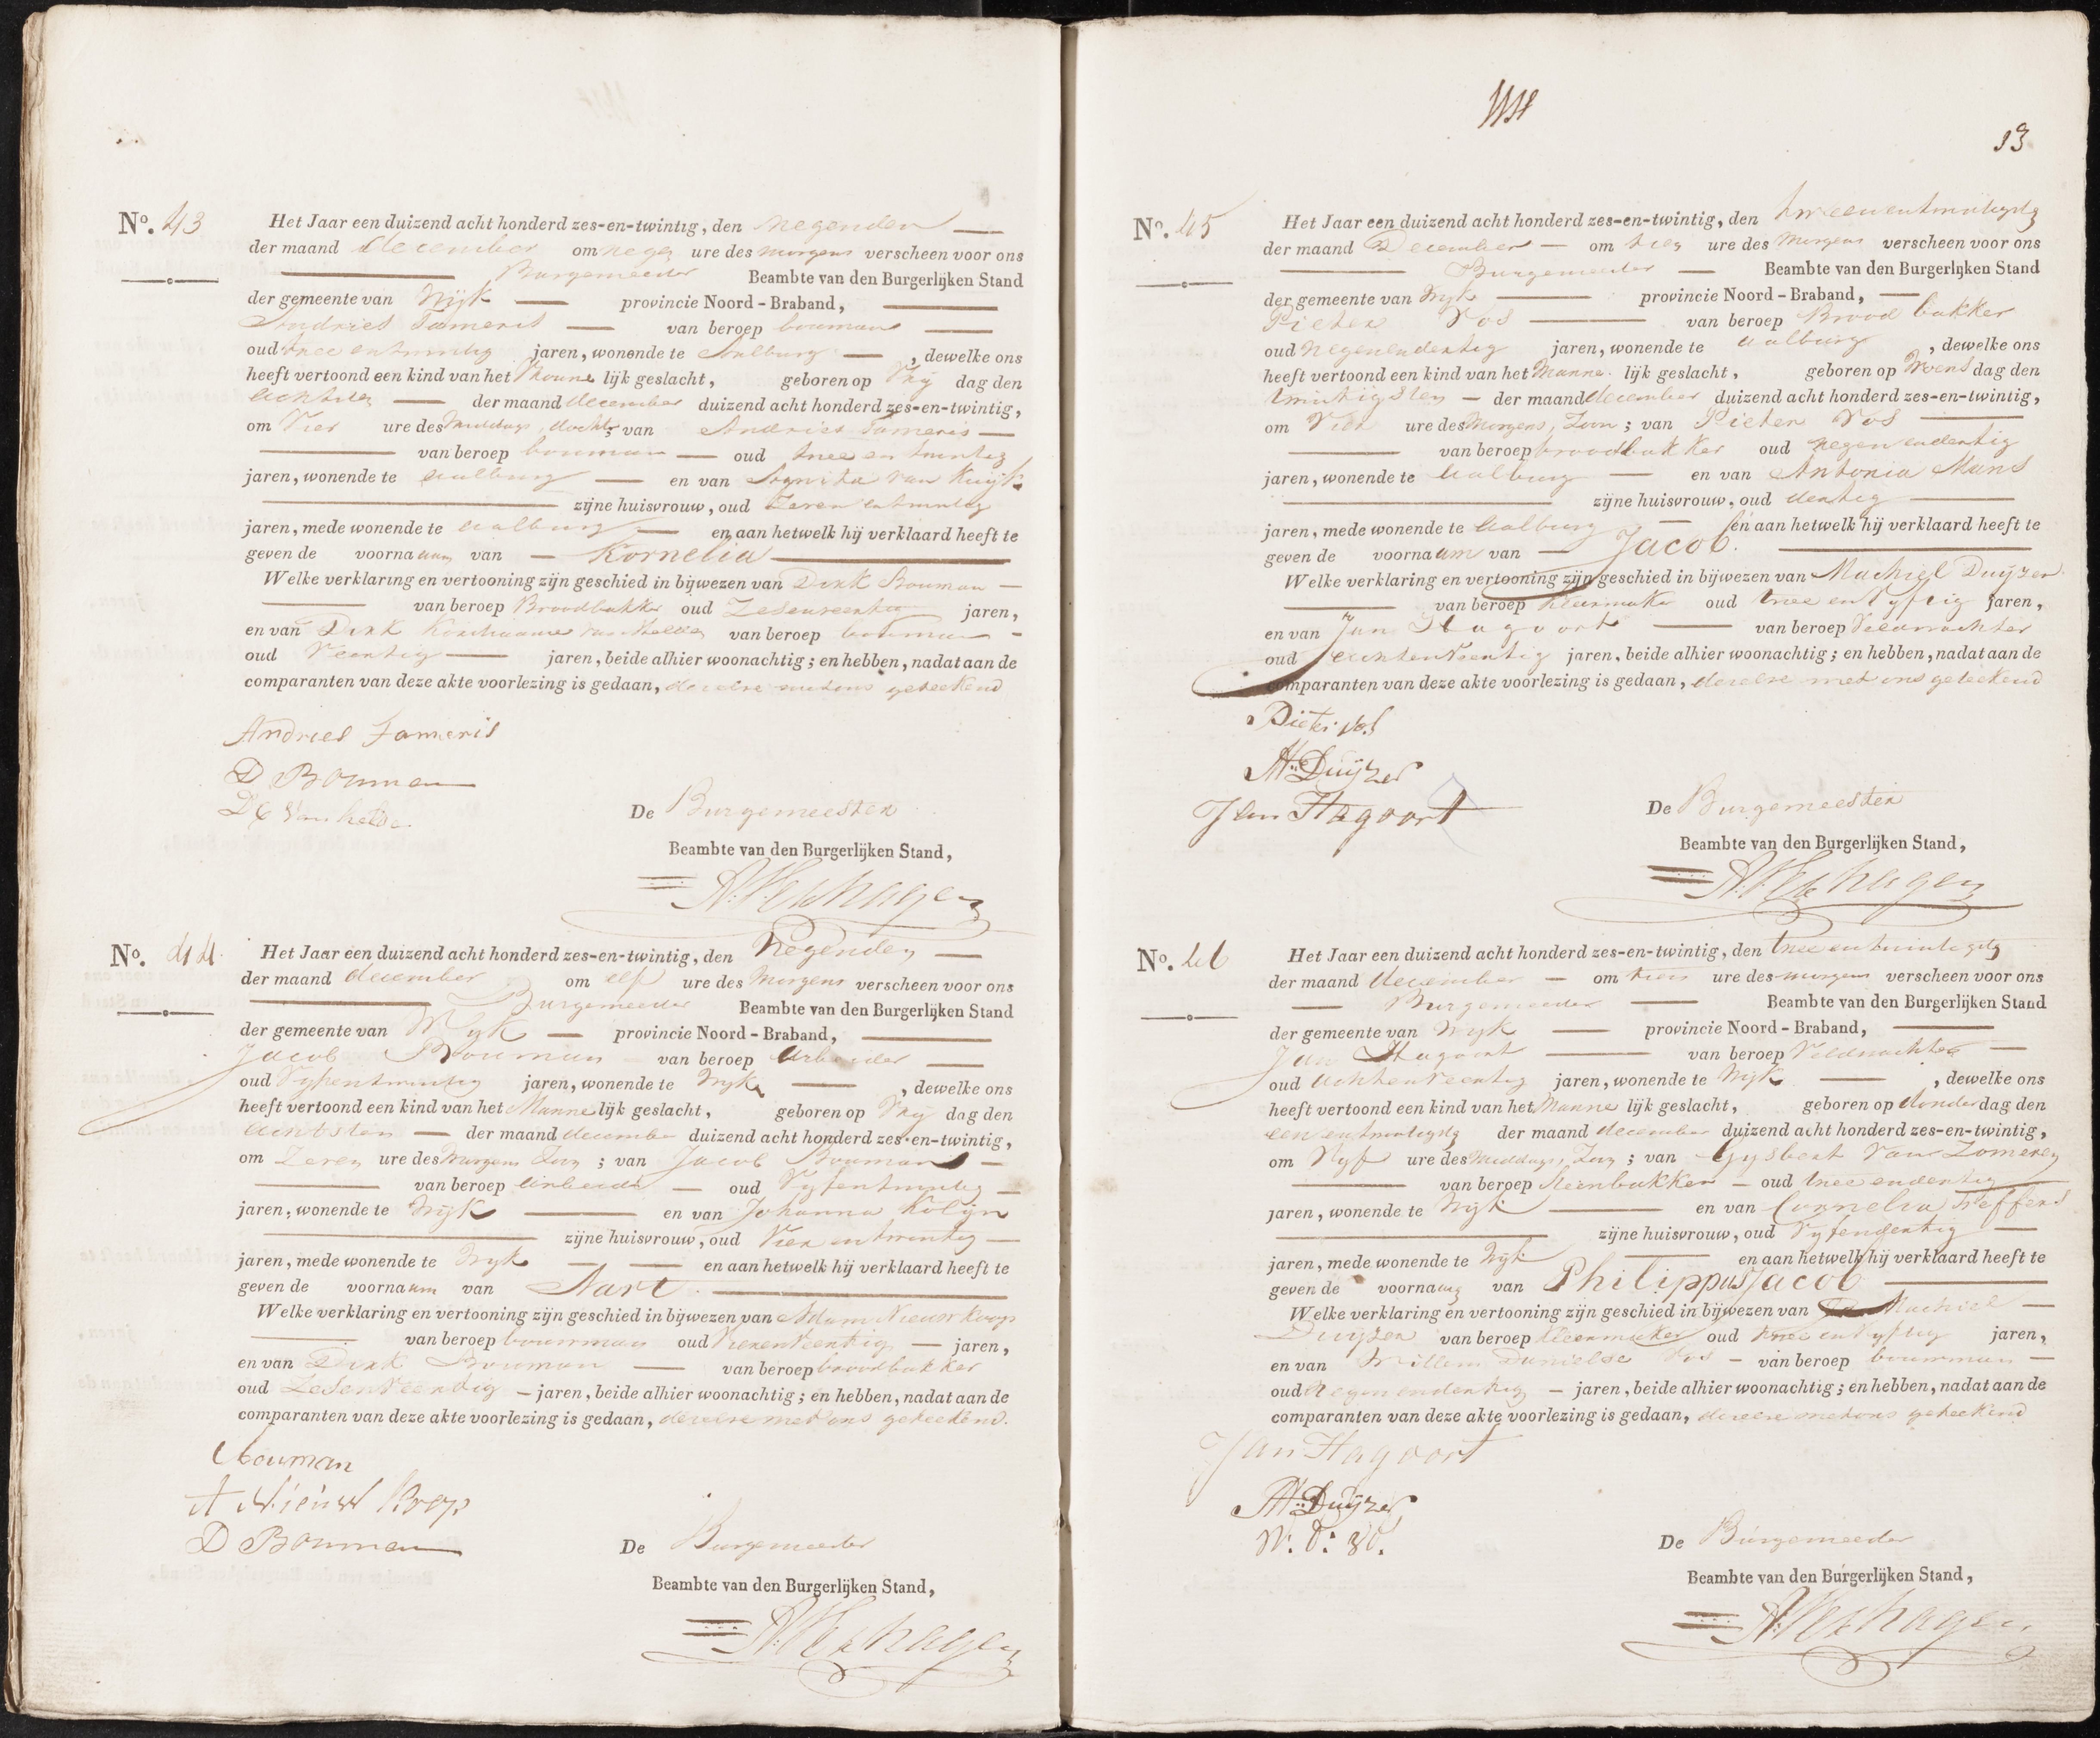 No. 43
Het Jaar een duizend acht honderd zes-en-twintig, den negenden
der maand december om negen ure des morgens verscheen voor ons
Burgemeester Beambte van den Burgerlijken Stand
der gemeente van Wijk provincie Noord-Braband,
Andries Tameris van beroep bouman
oud twee en twintig jaren, wonende te Aalburg, dewelke ons
heeft vertoond een kind van het Vrouwe lijk geslacht, geboren op Vrij dag den
achtsten der maand december duizend acht honderd zes-en-twintig,
om Vier ure des middags, docht; van Andries Tameris
van beroep bouman oud twee en twintig
jaren, wonende te aalburg en van van Kuijk
zijne huisvrouw, oud Zeven entwintig
jaren, mede wonende te aalburg en aan hetwelk hij verklaard heeft te
geven de voornaam van Kornelia
Welke verklaring en vertooning zijn geschied in bijwezen van Dirk Bouman
van beroep Broodbakker oud Zesenveertig jaren,
en van Dirk van helden van beroep bouman
oud Veertig jaren, beide alhier woonachtig; en hebben, nadat aan de
comparanten van deze akte voorlezing is gedaan, dezelve met ons geteekend
Andries Tameris
D Bouman
D C Van helde
De Burgemeester
Beambte van den Burgerlijken Stand,
A. Verhagen
No. 44
Het Jaar een duizend acht honderd zes-en-twintig, den Negenden
der maand december om elf ure des Morgens verscheen voor ons
Burgemeester Beambte van den Burgerlijken Stand
der gemeente van Wijk provincie Noord-Braband,
Jacob Bouman van beroep Arbeider
oud Vijfentwintig jaren, wonende te Wijk, dewelke ons
heeft vertoond een kind van het Manne lijk geslacht, geboren op Vrij dag den
achtsten der maand december duizend acht honderd zes-en-twintig,
om Zeven ure des Morgens Zoon; van Jacob Bouman
van beroep Arbeider oud Vijfentwintig
jaren, wonende te Wijk en van Johanna Kolijn
zijne huisvrouw, oud Vier entwintig
jaren, mede wonende te Wijk en aan hetwelk hij verklaard heeft te
geven de voornaam van Aart
Welke verklaring en vertooning zijn geschied in bijwezen van Adam Nieuwkoop
van beroep bouwman oud Vierenveertig jaren,
en van Dirk Bouman van beroep broodbakker
oud Zesenveertig jaren, beide alhier woonachtig; en hebben, nadat aan de
comparanten van deze akte voorlezing is gedaan, dezelve met ons geteekend.
Bouman
A Nieuwkoop
D Bouman
De Burgemeester
Beambte van den Burgerlijken Stand,
A. Verhagen
13
No. 45
Het Jaar een duizend acht honderd zes-en-twintig, den tweeentwintigste
der maand December om tien ure des Morgens verscheen voor ons
Burgemeester Beambte van den Burgerlijken Stand
der gemeente van Wijk provincie Noord-Braband,
Pieter Vos van beroep Brood bakker
oud negenendertig jaren, wonende te aalburg, dewelke ons
heeft vertoond een kind van het Manne lijk geslacht, geboren op Woens dag den
twintigsten der maand december duizend acht honderd zes-en-twintig,
om Vier ure des Morgens, Zoon; van Pieter Vos
van beroep broodbakker oud negenendertig
jaren, wonende te aalburg en van Antonia Mans
zijne huisvrouw, oud dertig
jaren, mede wonende te aalburg en aan hetwelk hij verklaard heeft te
geven de voornaam van Jacob.
Welke verklaring en vertooning zijn geschied in bijwezen van Machiel Duijzer
van beroep kleermaker oud twee en Vijftig jaren,
en van Jan Hagoort van beroep Veldwachter
oud achtenVeertig jaren, beide alhier woonachtig; en hebben, nadat aan de
comparanten van deze akte voorlezing is gedaan, dezelve met ons geteekend
Pieter Vos
M. Duijzer
Jan Hagoort
De Burgemeester
Beambte van den Burgerlijken Stand,
A. Verhagen
No. 46
Het Jaar een duizend acht honderd zes-en-twintig, den twee entwintigste
der maand december om tien ure des morgens verscheen voor ons
Burgemeester Beambte van den Burgerlijken Stand
der gemeente van Wijk provincie Noord-Braband,
Jan Hagoort van beroep Veldwachter
oud achtenveertig jaren, wonende te Wijk, dewelke ons
heeft vertoond een kind van het Manne lijk geslacht, geboren op donder dag den
een entwintigste der maand december duizend acht honderd zes-en-twintig,
om Vijf ure des Middags, Zoon; van Gijsbert Van Zomeren
van beroep steenbakker oud twee endertig
jaren, wonende te Wijk en van Cornelia Treffers
zijne huisvrouw, oud Vijfendertig
jaren, mede wonende te Wijk en aan hetwelk hij verklaard heeft te
geven de voornaam van Philippus Jacob
Welke verklaring en vertooning zijn geschied in bijwezen van Machiel
Duijzer van beroep kleermaker oud twee enVijftig jaren,
en van Willem Danielse Vos van beroep bouwman
oud Negenendertig jaren, beide alhier woonachtig; en hebben, nadat aan de
comparanten van deze akte voorlezing is gedaan, dezelve met ons geteekend
Jan Hagoort
M. Duijzer
De Burgemeester
Beambte van den Burgerlijken Stand,
A. Verhagen